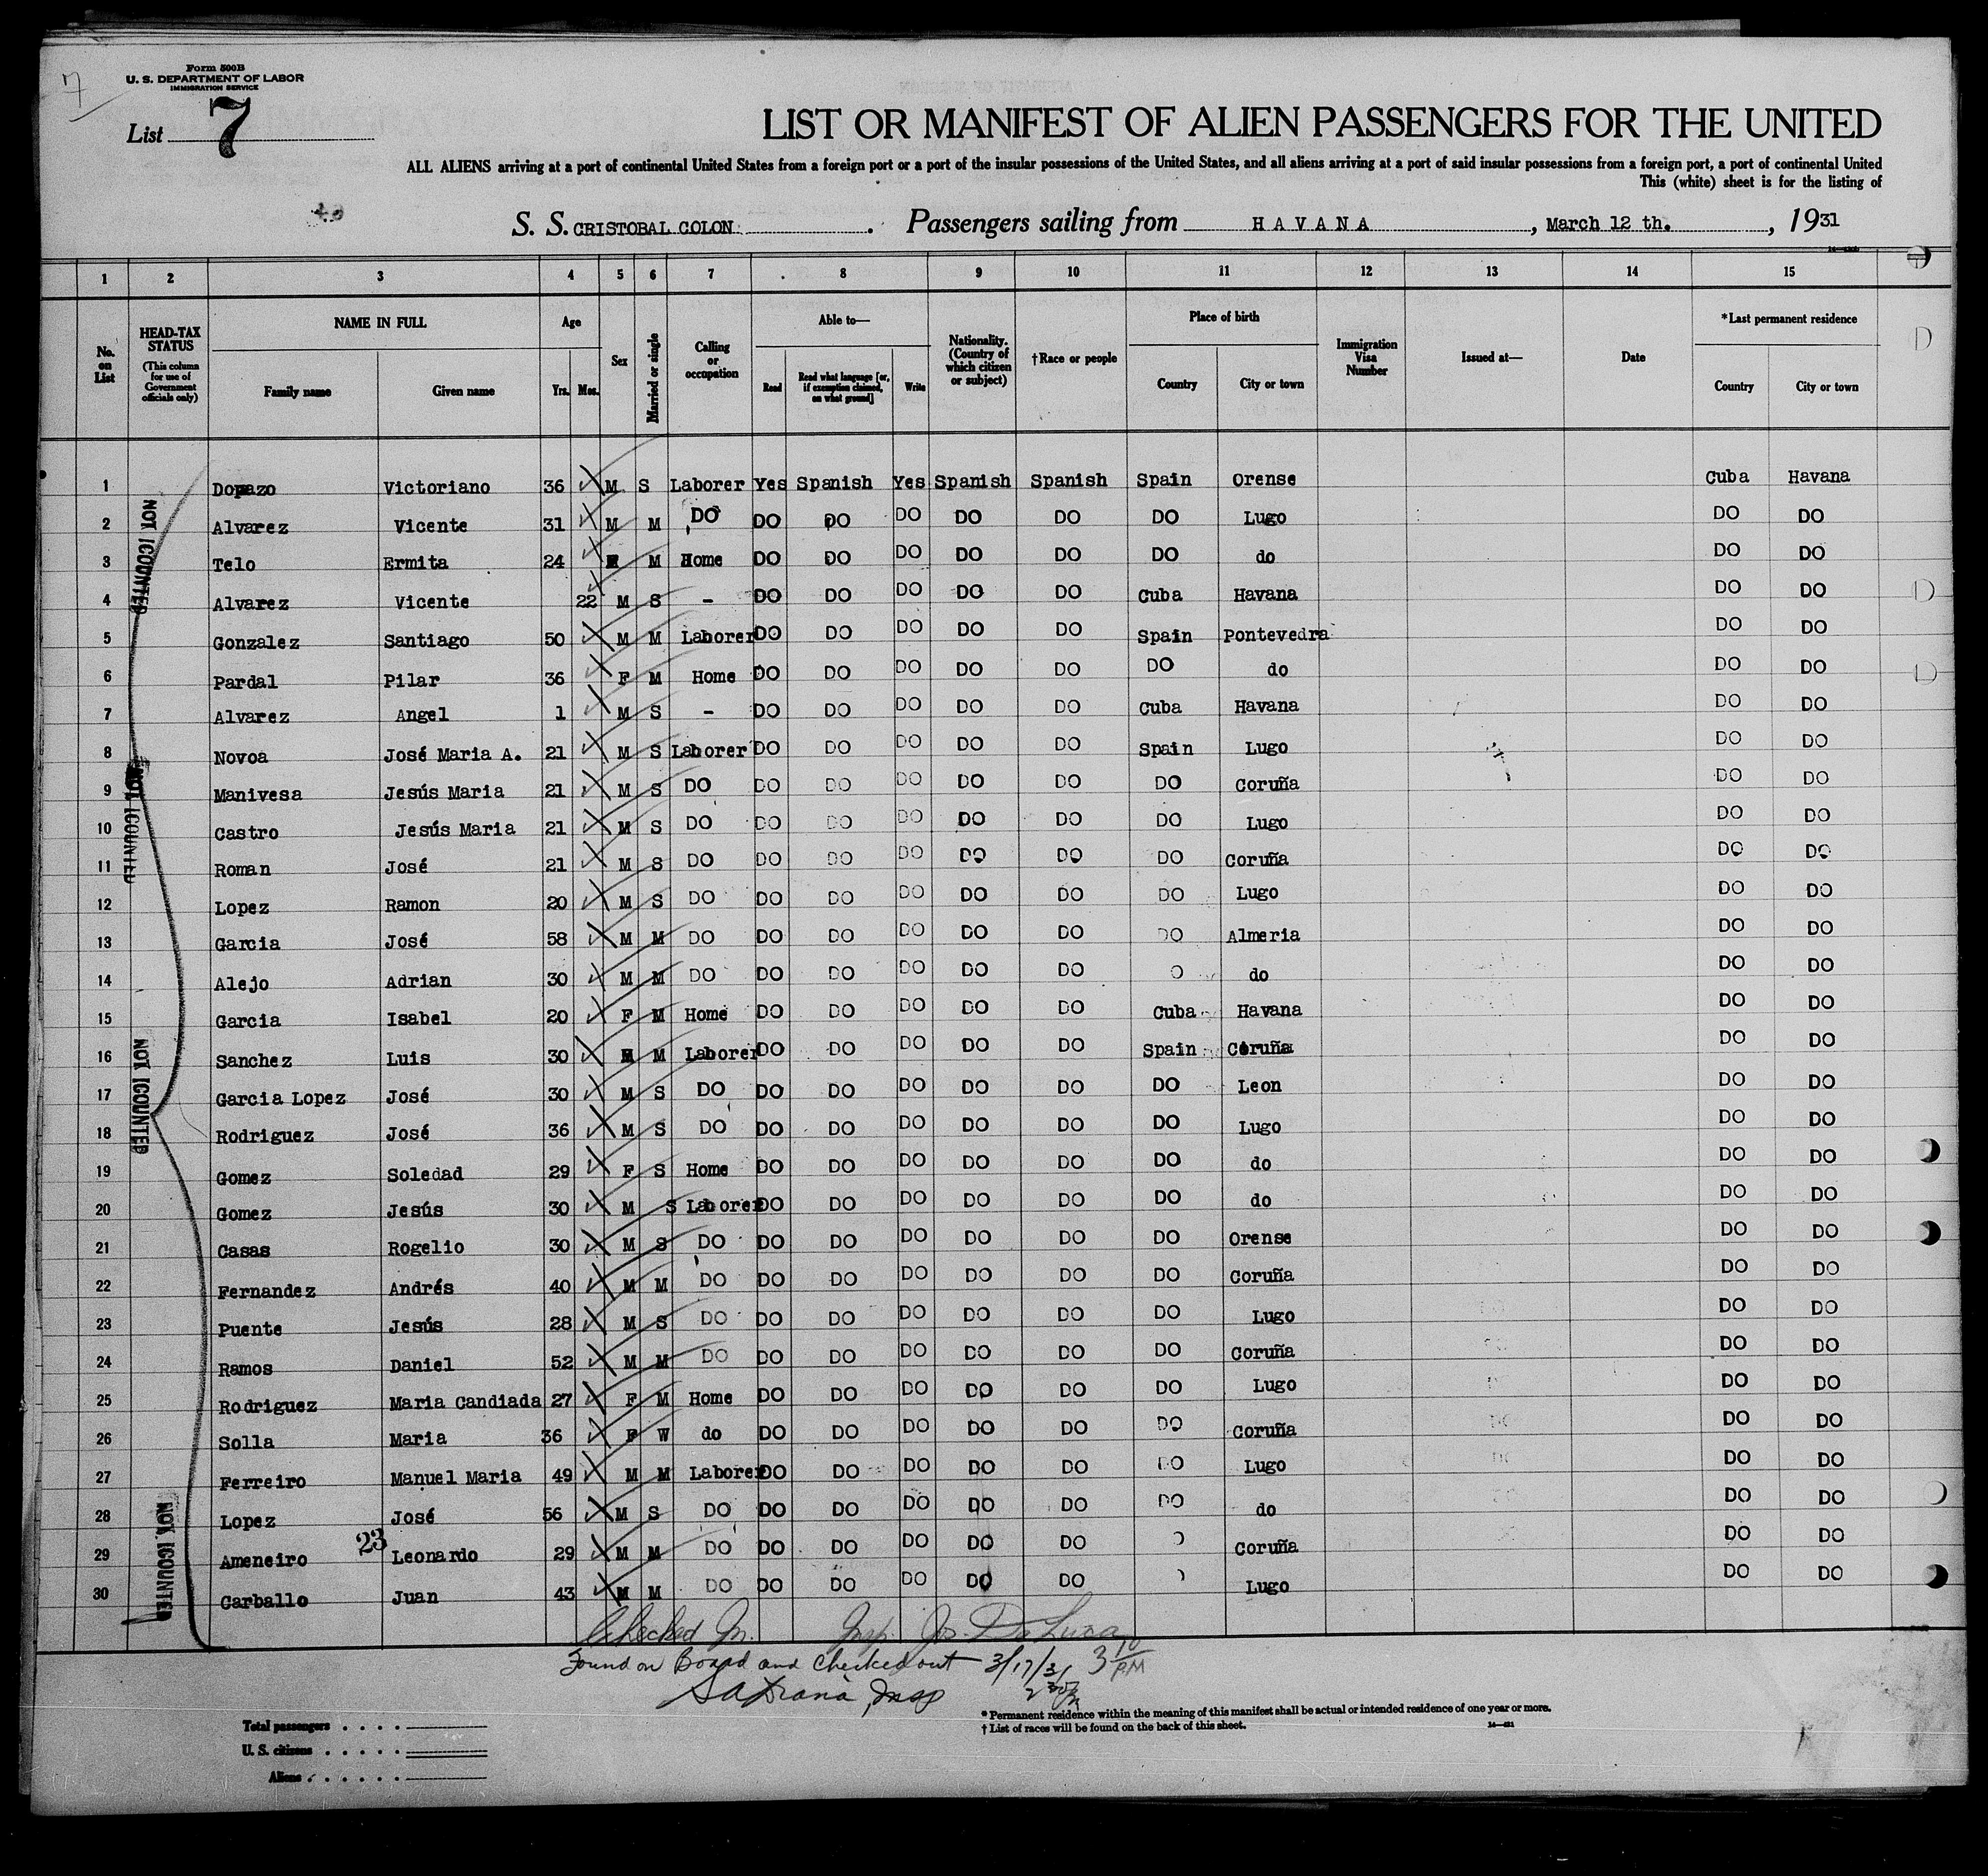 7
Form 500B
U. S. DEPARTMENT OF LABOR
IMMIGRATION SERVICE
List 7
LIST OR MANIFEST OF ALIEN PASSENGERS FOR THE UNITED
ALL ALIENS arriving at a port of continental United States from a foreign port or a port of the insular possessions of the United States, and all aliens arriving at a port of said insular possessions from a foreign port, a port of continental United
This (white) sheet is for the listing of
S. S. CRISTOBAL COLON. Passengers sailing from HAVANA, March 12 th., 1931
1 2 3 4 5 6 7 8 9 10 11 12 13 14 15
No. on List HEAD-TAX STATUS (This column for use of Government officials only) NAME IN FULL Family name Given name Age Yrs. Mos. Sex Married or single Calling or occupation Able to— Read Read what language [or, if exemption claimed, on what ground] Write Nationality. (Country of which citizen or subject) †Race or people Place of birth Country City or town Immigration Visa Number Issued at— Date *Last permanent residence Country City or town
1 Dopazo Victoriano 36 M S Laborer Yes Spanish Yes Spanish Spanish Spain Orense Cuba Havana
2 Alvarez Vicente 31 M M DO DO DO DO DO DO DO Lugo DO DO
3 Telo Ermita 24 F M Home DO DO DO DO DO DO do DO DO
4 Alvarez Vicente 22 M S - DO DO DO DO DO Cuba Havana DO DO
5 Gonzalez Santiago 50 M M Laborer DO DO DO DO DO Spain Pontevedra DO DO
6 Pardal Pilar 36 F M Home DO DO DO DO DO DO do DO DO
7 Alvarez Angel 1 M S - DO DO DO DO DO Cuba Havana DO DO
8 Novoa José Maria A. 21 M S Laborer DO DO DO DO DO Spain Lugo DO DO
9 Manivesa Jesús Maria 21 M S DO DO DO DO DO DO DO Coruña DO DO
10 Castro Jesús Maria 21 M S DO DO DO DO DO DO DO Lugo DO DO
11 Roman José 21 M S DO DO DO DO DO DO DO Coruña DO DO
12 Lopez Ramon 20 M S DO DO DO DO DO DO DO Lugo DO DO
13 Garcia José 58 M M DO DO DO DO DO DO DO Almeria DO DO
14 Alejo Adrian 30 M M DO DO DO DO DO DO O do DO DO
15 Garcia Isabel 20 F M Home DO DO DO DO DO Cuba Havana DO DO
16 Sanchez Luis 30 M M Laborer DO DO DO DO DO Spain Coruña DO DO
17 Garcia Lopez José 30 M S DO DO DO DO DO DO DO Leon DO DO
18 Rodriguez José 36 M S DO DO DO DO DO DO DO Lugo DO DO
19 Gomez Soledad 29 F S Home DO DO DO DO DO DO do DO DO
20 Gomez Jesús 30 M S Laborer DO DO DO DO DO DO do DO DO
21 Casas Rogelio 30 M S DO DO DO DO DO DO DO Orense DO DO
22 Fernandez Andrés 40 M M DO DO DO DO DO DO DO Coruña DO DO
23 Puente Jesús 28 M S DO DO DO DO DO DO DO Lugo DO DO
24 Ramos Daniel 52 M M DO DO DO DO DO DO DO Coruña DO DO
25 Rodriguez Maria Candiada 27 F M Home DO DO DO DO DO DO Lugo DO DO
26 Solla Maria 36 F W do DO DO DO DO DO DO Coruña DO DO
27 Ferreiro Manuel Maria 49 M M Laborer DO DO DO DO DO DO Lugo DO DO
28 Lopez José 56 M S DO DO DO DO DO DO DO do DO DO
29 Ameneiro 23 Leonardo 29 M M DO DO DO DO DO DO Coruña DO DO
30 Carballo Juan 43 M M DO DO DO DO DO DO Lugo DO DO
NOT COUNTED
NOT COUNTED
NOT COUNTED
NOT COUNTED
Checked In. Insp. Jos. DeLuca
Found on Board and checked out 3/17/31 3 10 PM
Insp
* Permanent residence within the meaning of this manifest shall be actual or intended residence of one year or more.
† List of races will be found on the back of this sheet.
Total passengers
U. S. citizens
Aliens